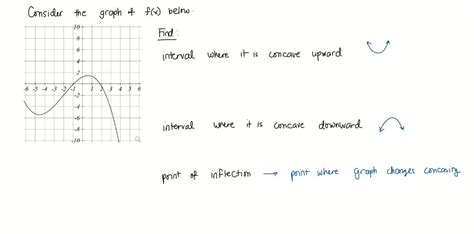 Consider the graph of f(x) below.
Find:
interval where it is concave upward
interval where it is concave downward
point of inflection → point where graph changes concavity
10
8
6
4
2
-6 -5 -4 -3 -2 -1 1 2 3 4 5 6
-2
-4
-6
-8
-10